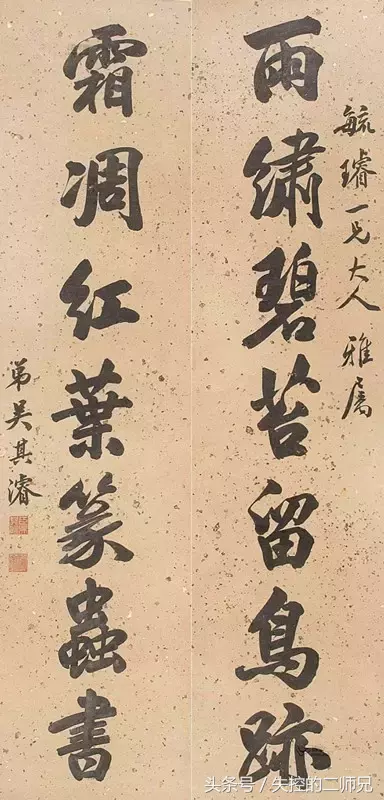 毓璿一兄大人雅屬
雨繡碧苔留鳥跡
霜凋紅葉篆蟲書
弟吳其濬
头条号 / 失控的二师兄